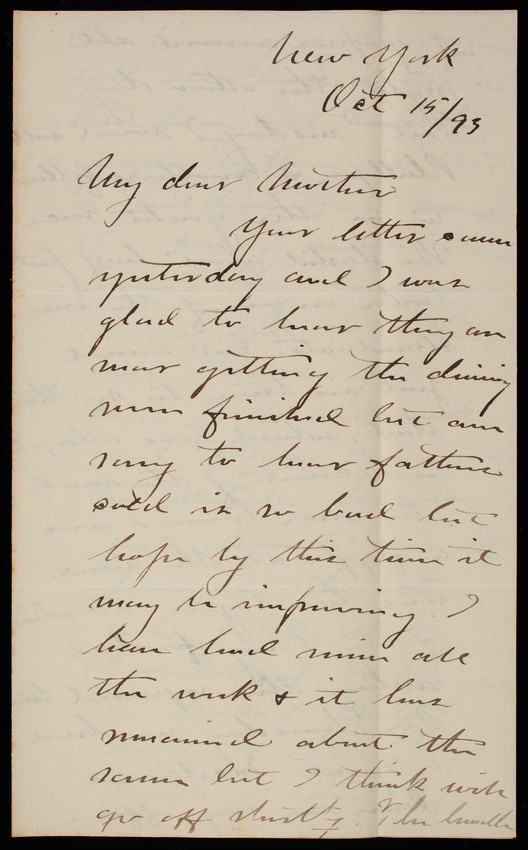 New York
Oct 15/93
My dear Mother
Your letter came
yesterday and I was
glad to hear they are
near getting the dining
room finished but am
sorry to hear fathers
cold is so bad but
hope by this time it
may be improving. I
have had mine all
the week & it has
remained about the
same but I think will
go off shortly. The